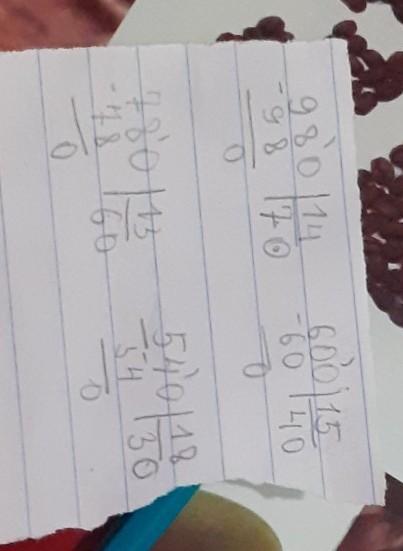 980 | 14 600 | 15
-98 70 -60 40
0 0
780 | 13 540 | 18
-78 60 -54 30
0 0